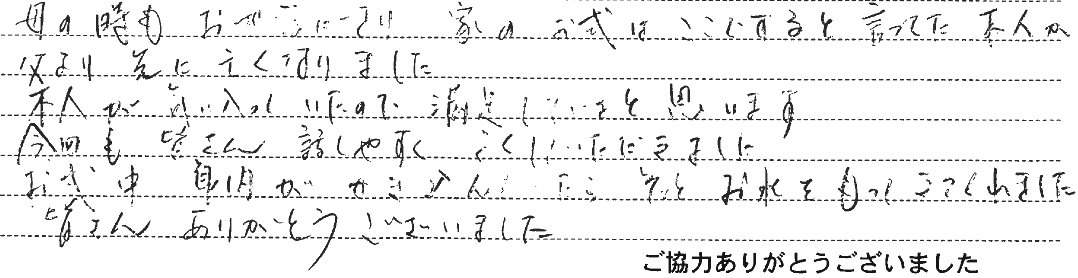 母の時も お世話になり 家の お式は ここですると 言ってた 本人が
父より 先に 亡くなりました
本人が 気に入って いたので 満足していると 思います
今回も 皆さん 話しやすく よくしていただきました
お式中 身内が せき込んでいたら お水を もって きてくれました
皆さん ありがとう ございました
ご協力ありがとうございました